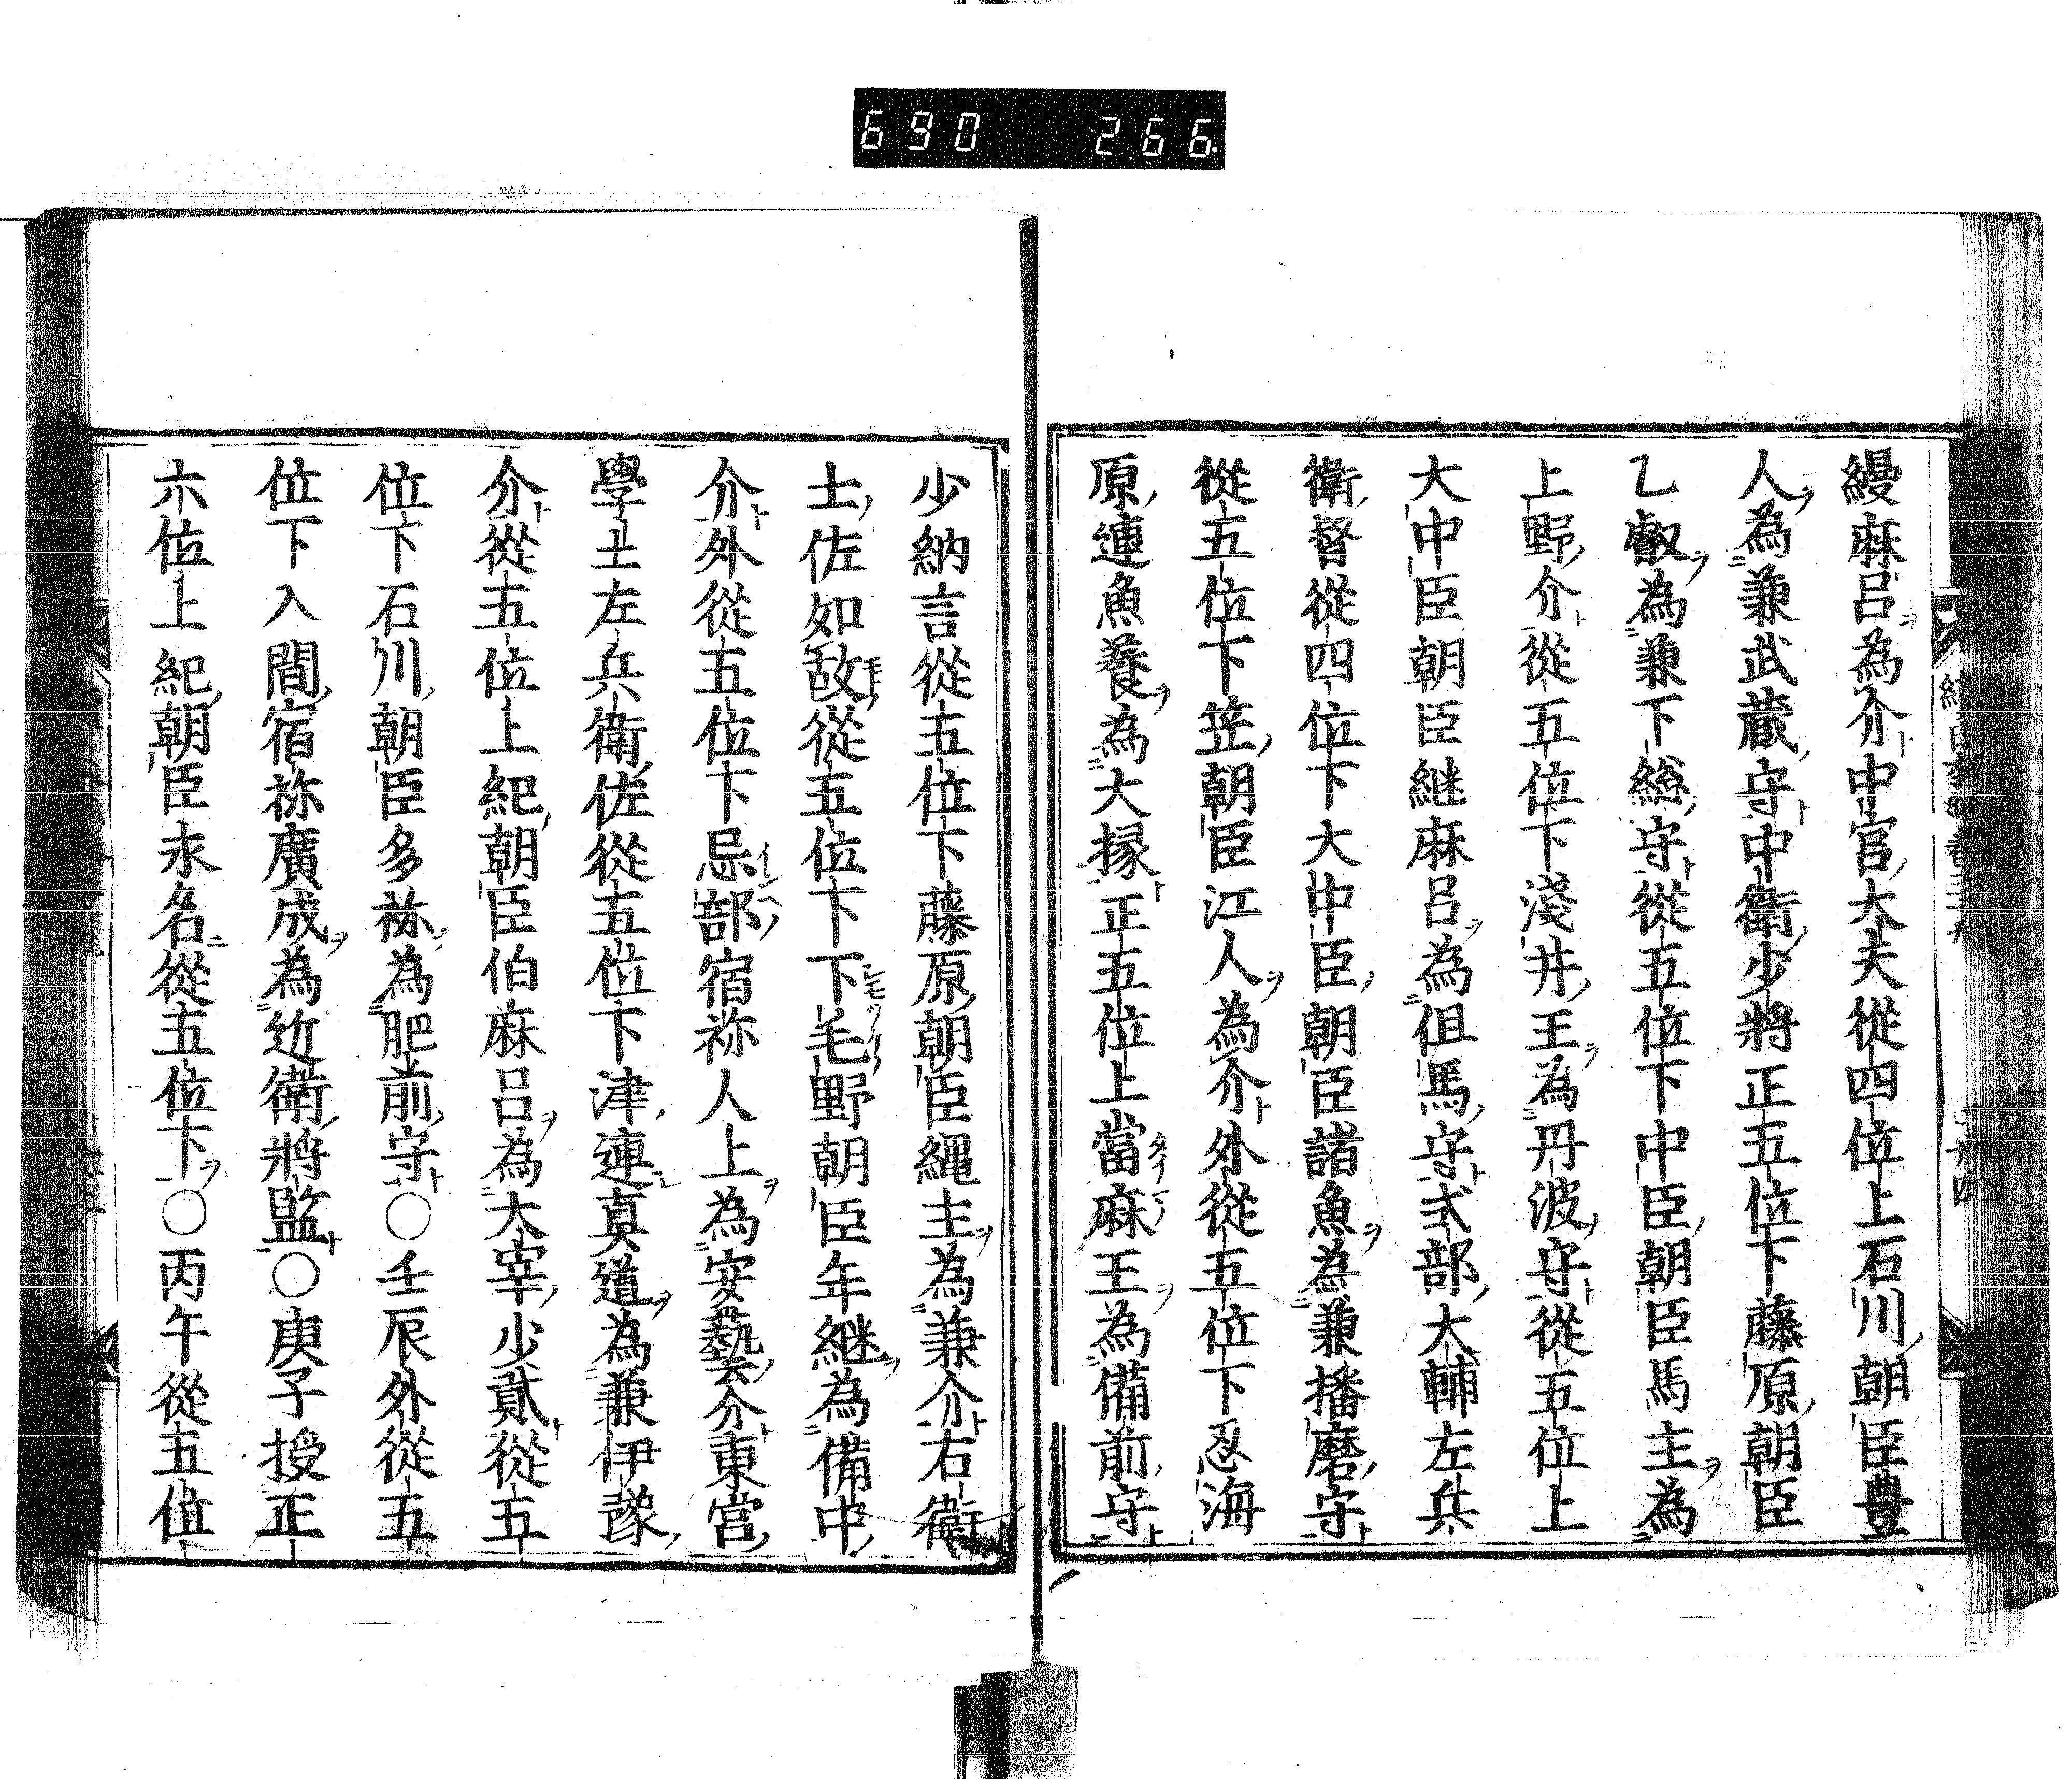 690 266
縵麻呂為介中宮大夫從四位上石川朝臣豊
人為兼武藏守中衛少將正五位下藤原朝臣
乙叡為兼下総守從五位下中臣朝臣馬主為
上野介從五位下淺井王為丹波守從五位上
大中臣朝臣継麻呂為但馬守式部大輔左兵
衛督從四位下大中臣朝臣諸魚為兼播磨守
從五位下笠朝臣江人為介外從五位下忍海
原連魚養為大掾正五位上當麻王為備前守
少納言從五位下藤原朝臣縄主為兼介右衛
士佐如故從五位下下毛野朝臣年継為備中
介外從五位下忌部宿祢人上為安藝介東宮
學士左兵衛佐從五位下津連真道為兼伊豫
介從五位上紀朝臣伯麻呂為大宰少貳從五
位下石川朝臣多祢為肥前守○壬辰外從五
位下入間宿祢廣成為近衛將監○庚子授正
六位上紀朝臣永名從五位下○丙午從五位